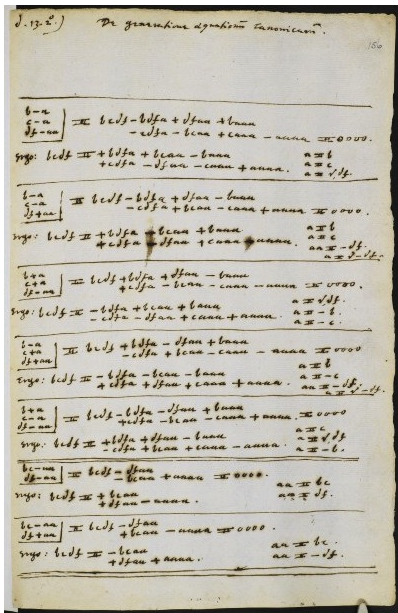 d.13.2°) De generatione æquationũ canonicarũ.
156
b-a
c-a = bcdf - bdfa + dfaa + baaa
df-aa - cdfa - bcaa + caaa - aaaa = 0000.
Ergo: bcdf = + bdfa + bcaa - baaa a = b
+ cdfa - dfaa - caaa + aaaa. a = c
a = √df.
b-a
c-a = bcdf - bdfa + dfaa - baaa
df+aa - cdfa + bcaa - caaa + aaaa = 0000.
Ergo: bcdf = + bdfa - bcaa + baaa a = b
+ cdfa - dfaa + caaa - aaaa. a = c
aa = -df.
a = √-df.
b+a
c+a = bcdf + bdfa + dfaa - baaa
df-aa + cdfa - bcaa - caaa - aaaa = 0000
Ergo: bcdf = - bdfa + bcaa + baaa a = √df.
- cdfa - dfaa + caaa + aaaa. a = -b.
a = -c.
b-a
c+a = bcdf + bdfa - dfaa + baaa
df+aa - cdfa + bcaa - caaa - aaaa = 0000
a = b
Ergo: bcdf = - bdfa - bcaa - baaa a = -c
+ cdfa + dfaa + caaa + aaaa. aa = -df.
a = √-df.
b+a
c-a = bcdf - bdfa - dfaa + baaa
df-aa + cdfa - bcaa - caaa + aaaa. = 0000
a = c
Ergo: bcdf = + bdfa + dfaa - baaa a = √df
- cdfa + bcaa + caaa - aaaa. a = -b.
bc-aa = bcdf - dfaa
df-aa - bcaa + aaaa = 0000.
Ergo: bcdf = + bcaa aa = bc
+ dfaa - aaaa. aa = df.
bc-aa = bcdf - dfaa
df+aa + bcaa - aaaa = 0000.
Ergo: bcdf = - bcaa aa = bc.
+ dfaa + aaaa. aa = -df.